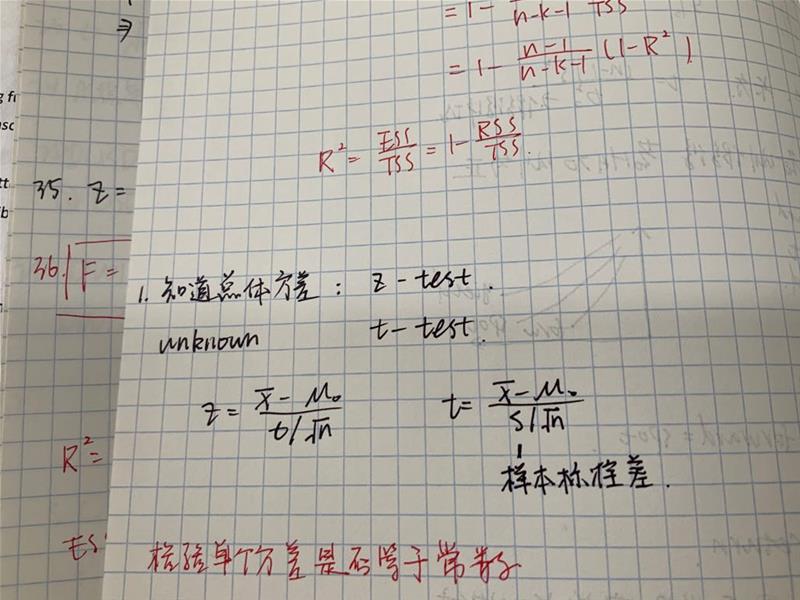 = 1 - —— ——
n-k-1 TSS
= 1 - (n-1)/(n-k-1) (1-R²)
R² = ESS/TSS = 1 - RSS/TSS.
35. z =
36. F =
1. 知道总体方差: z-test.
unknown t-test.
z = (x̄ - μ₀)/(σ/√n) t = (x̄ - μ₀)/(s/√n)
R² =
样本标准差.
ES
检验单个方差是否等于常数